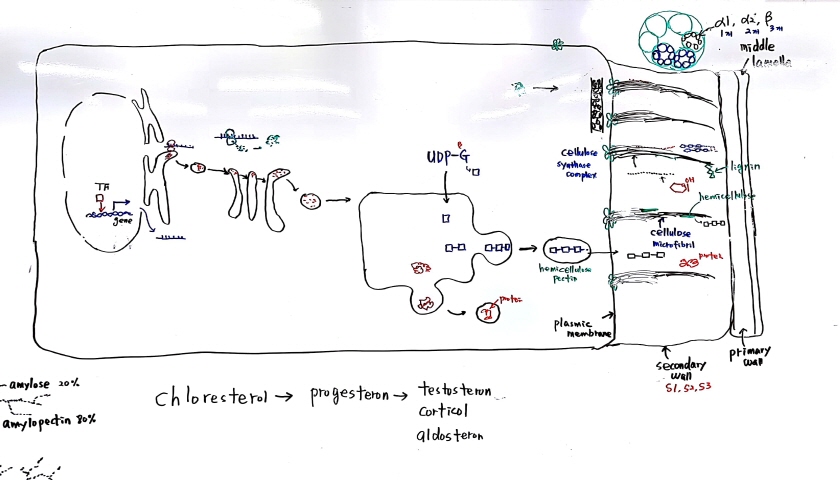 α1, α2, β
middle
lamella
UDP-G
cellulose
synthase
complex
lignin
OH
hemicellulose
TF
gene
cellulose
microfibril
protein
hemicellulose
pectin
protein
plasmic
membrane
primary
wall
secondary
wall
S1, S2, S3
amylose 20%
amylopectin 80%
chloresterol → progesteron → testosteron
corticol
aldosteron